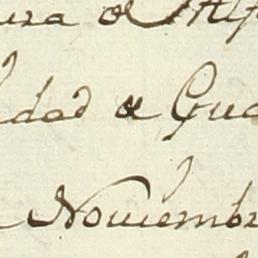 ura de Alf
dad de Gua
Noviembr